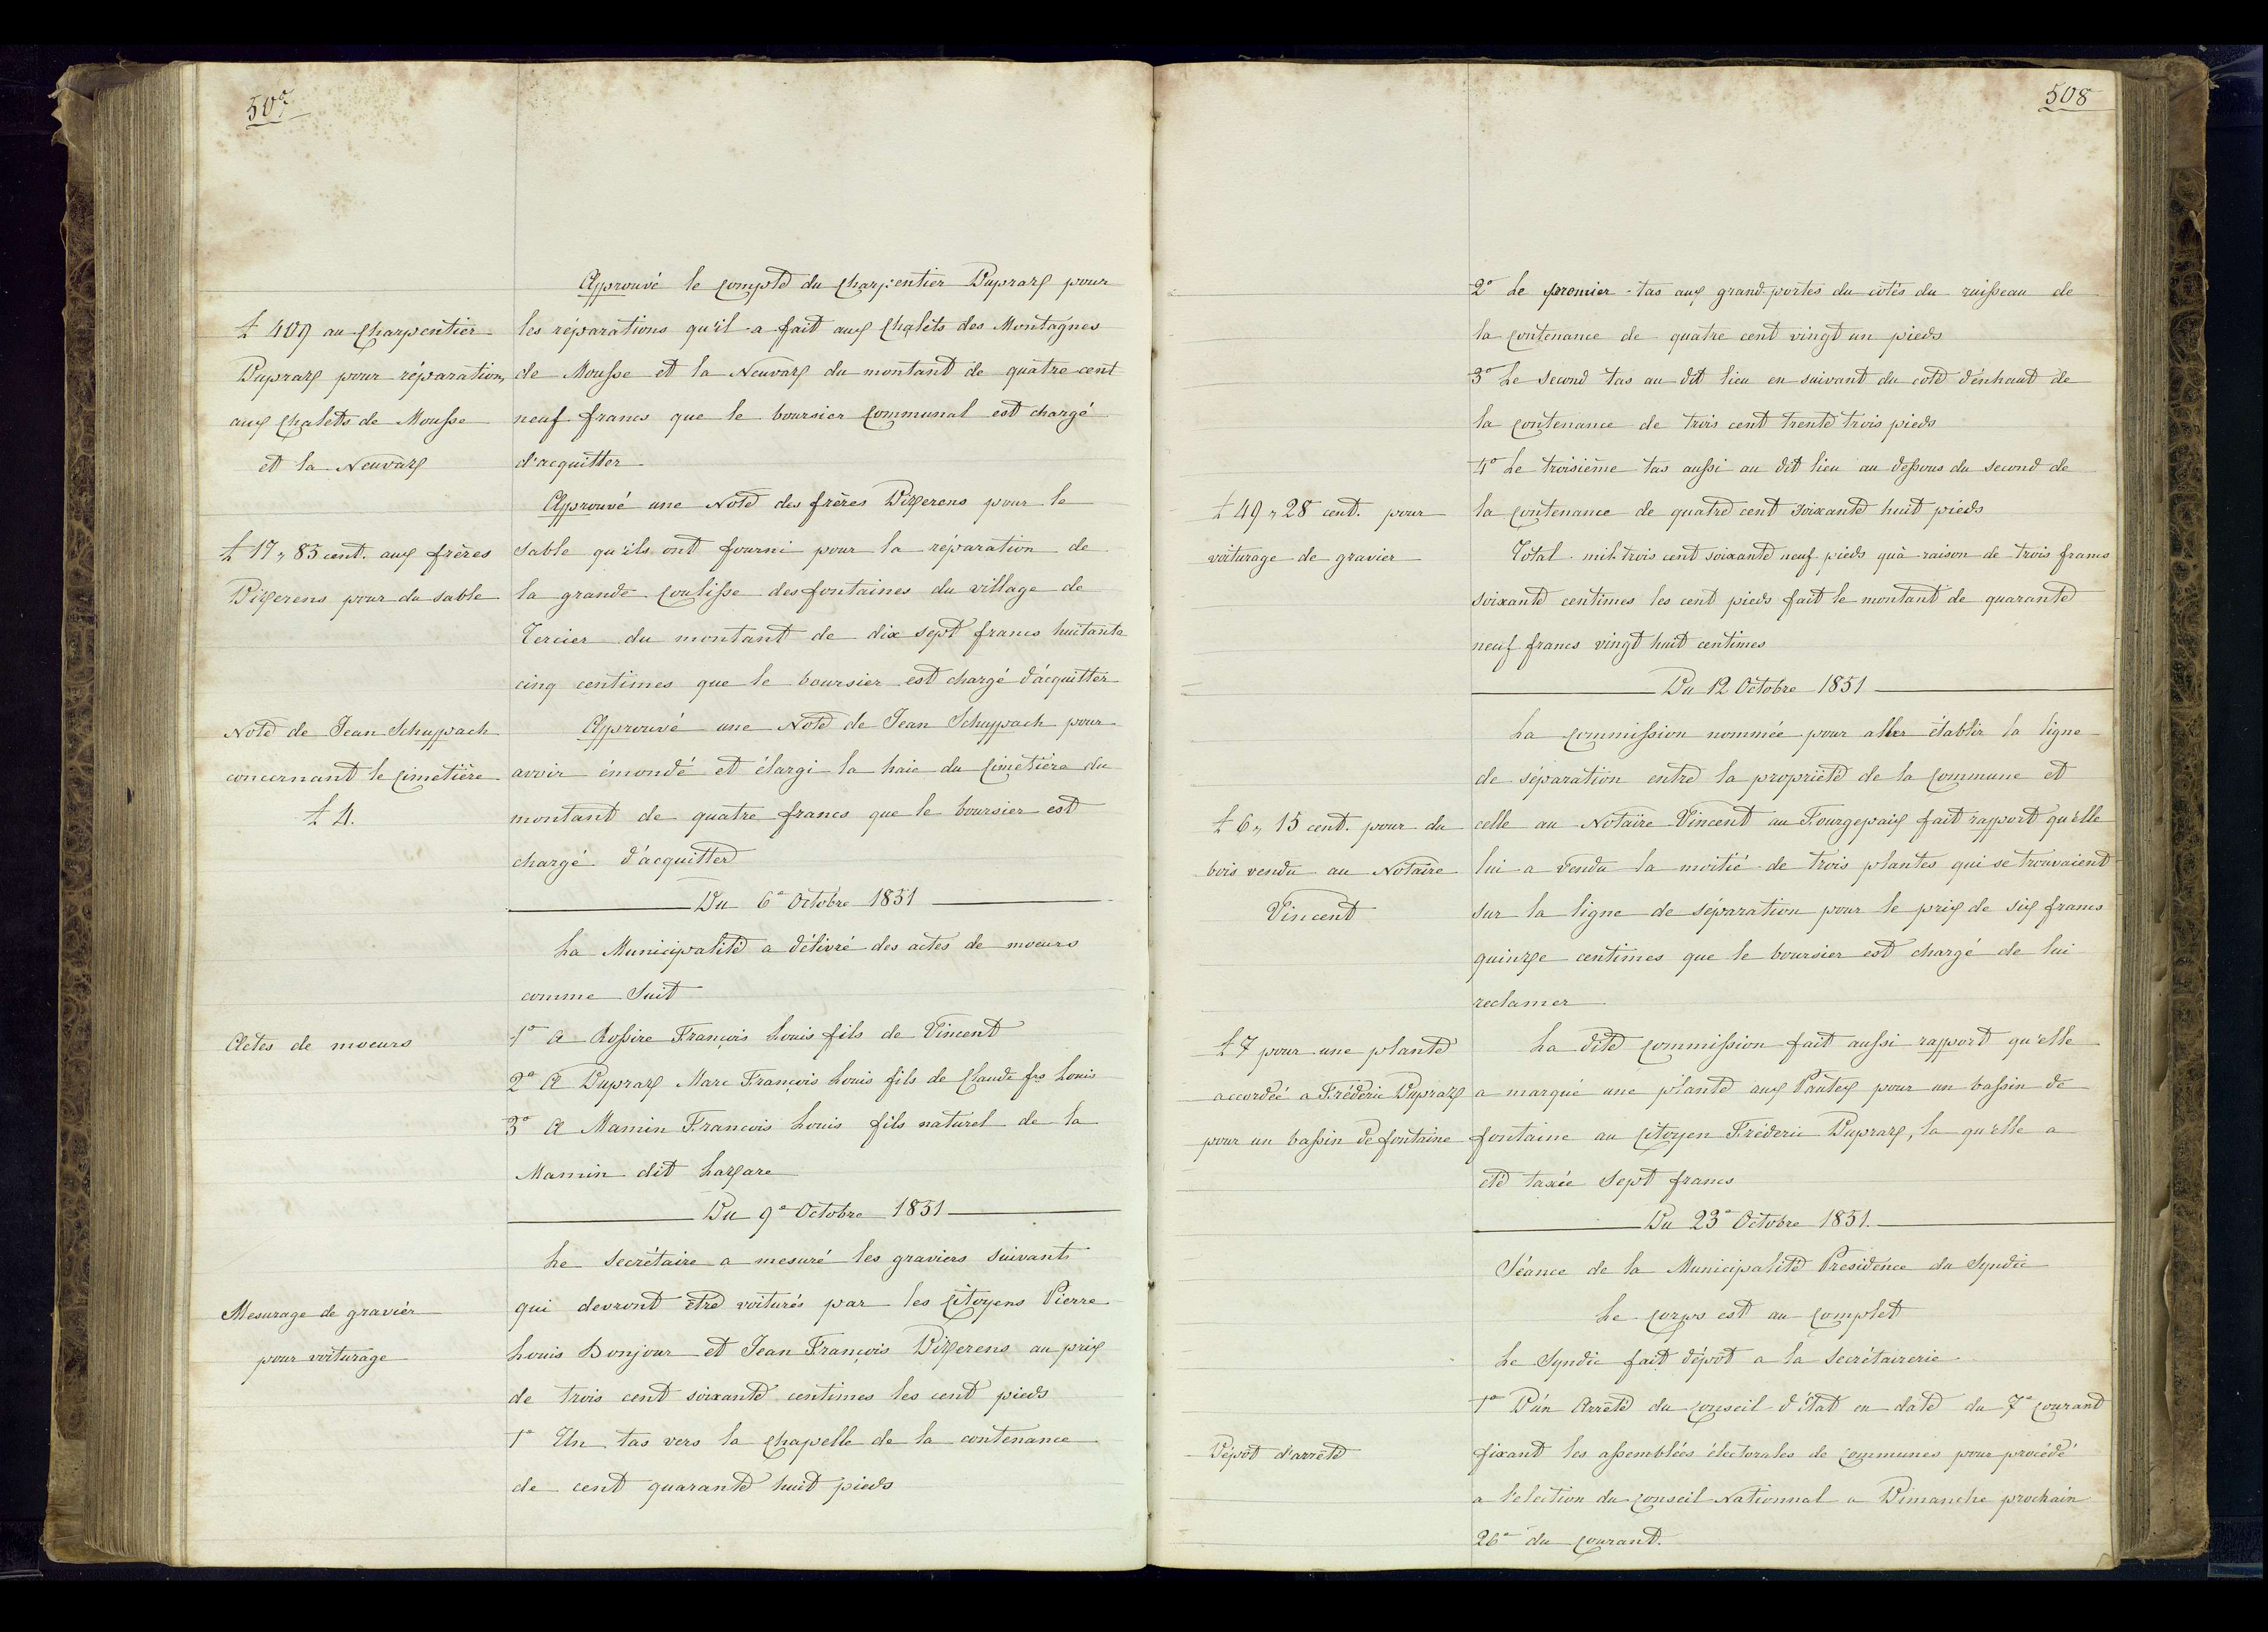 507
Approuvé le compte du Charpentier Dupraz pour
£ 409 au Charpentier
les réparations qu'il a fait aux Chalets des Montagnes
Dupraz pour réparation,
de Mousse et la Neuvaz du montant de quatre cent
aux Chalets de Mousse
neuf francs que le boursier communal est chargé
et la Neuvaz
d'acquitter
Approuvé une Note des frères Pizerens pour le
£ 17 „ 85 cent. aux frères
sable qu'ils ont fourni pour la réparation de
Pizerens pour du sable
la grande coulisse des fontaines du village de
Tercier du montant de dix sept francs huitante
cinq centimes que le boursier est chargé d'acquitter
Note de Jean Schuppach
Approuvé une Note de Jean Schuppach pour
concernant le Cimetière
avoir émondé et élargi la haie du Cimetière du
£ 4.
montant de quatre francs que le boursier est
chargé d'acquitter
Du 6e Octobre 1851
La Municipalité a délivré des actes de moeurs
comme Suit
Actes de moeurs
1° A Rossire François Louis fils de Vincent
2° A Dupraz Marc François Louis fils de Claude frs Louis
3° A Mamin Francois Louis fils naturel de la
Mamin dit Lazare
Du 9e Octobre 1851
Le Secrétaire a mesuré les graviers suivants
Mesurage de graviér
qui devront être voiturés par les Citoyens Pierre
pour voiturage
Louis Bonjour et Jean François Pizerens au prix
de trois cent soixante centimes les cent pieds
1° Un tas vers la Chapelle de la contenance
de cent quarante huit pieds
508
2° Le premier tas aux grand portes du cotés du ruisseau de
la contenance de quatre cent vingt un pieds
3° Le Second tas au dit lieu en suivant du coté d'enhaut de
la contenance de trois cent trente trois pieds
4° Le troisième tas aussi au dit lieu au dessous du second de
£ 49 „ 28 cent. pour
la contenance de quatre cent soixante huit pieds
voiturage de gravier
Total mil trois cent soixante neuf pieds qu'à raison de trois francs
soixante centimes les cent pieds fait le montant de quarante
neuf francs vingt huit centimes
Du 12 Octobre 1851
La Commission nommée pour aller établir la ligne
de séparation entre la propriété de la Commune et
£ 6 „ 15 cent. pour du
celle au Notaire Vincent au Fourgepaix fait rapport qu'elle
bois vendu au Notaire
lui a vendu la moitié de trois plantes qui se trouvaient
Vincent
sur la ligne de séparation pour le prix de six francs
quinze centimes que le boursier est chargé de lui
reclamer
£ 7 pour une plante
La dite Commission fait aussi rapport qu'elle
accordée a Fréderic Dupraz
a marqué une plante aux Pautex pour un bassin de
pour un bassin de fontaine
fontaine au Citoyen Fréderic Dupraz, la qu'elle a
été taxée Sept francs
Du 23e Octobre 1851.
Séance de la Municipalité Présidence du Syndic
Le Corps est au Complet
Le Syndic fait dépôt a la Secrétairerie
1° D'un Arrêté du Conseil d'état en date du 7e courant
Dépôt d'arrêté
fixant les assemblées électorales de Communes pour procédé
a l'election du Conseil Nationnal a Dimanche prochain
26e du Courant.